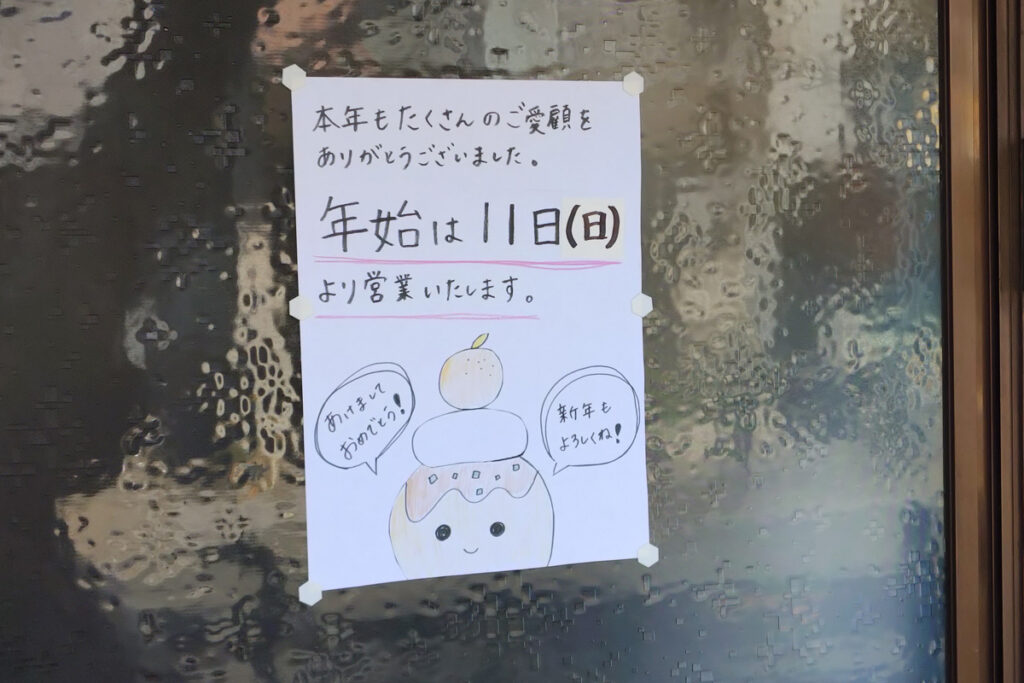 本年もたくさんのご愛顧を
ありがとうございました。
年始は11日(日)
より営業いたします。
あけまして
おめでとう!
新年も
よろしくね!